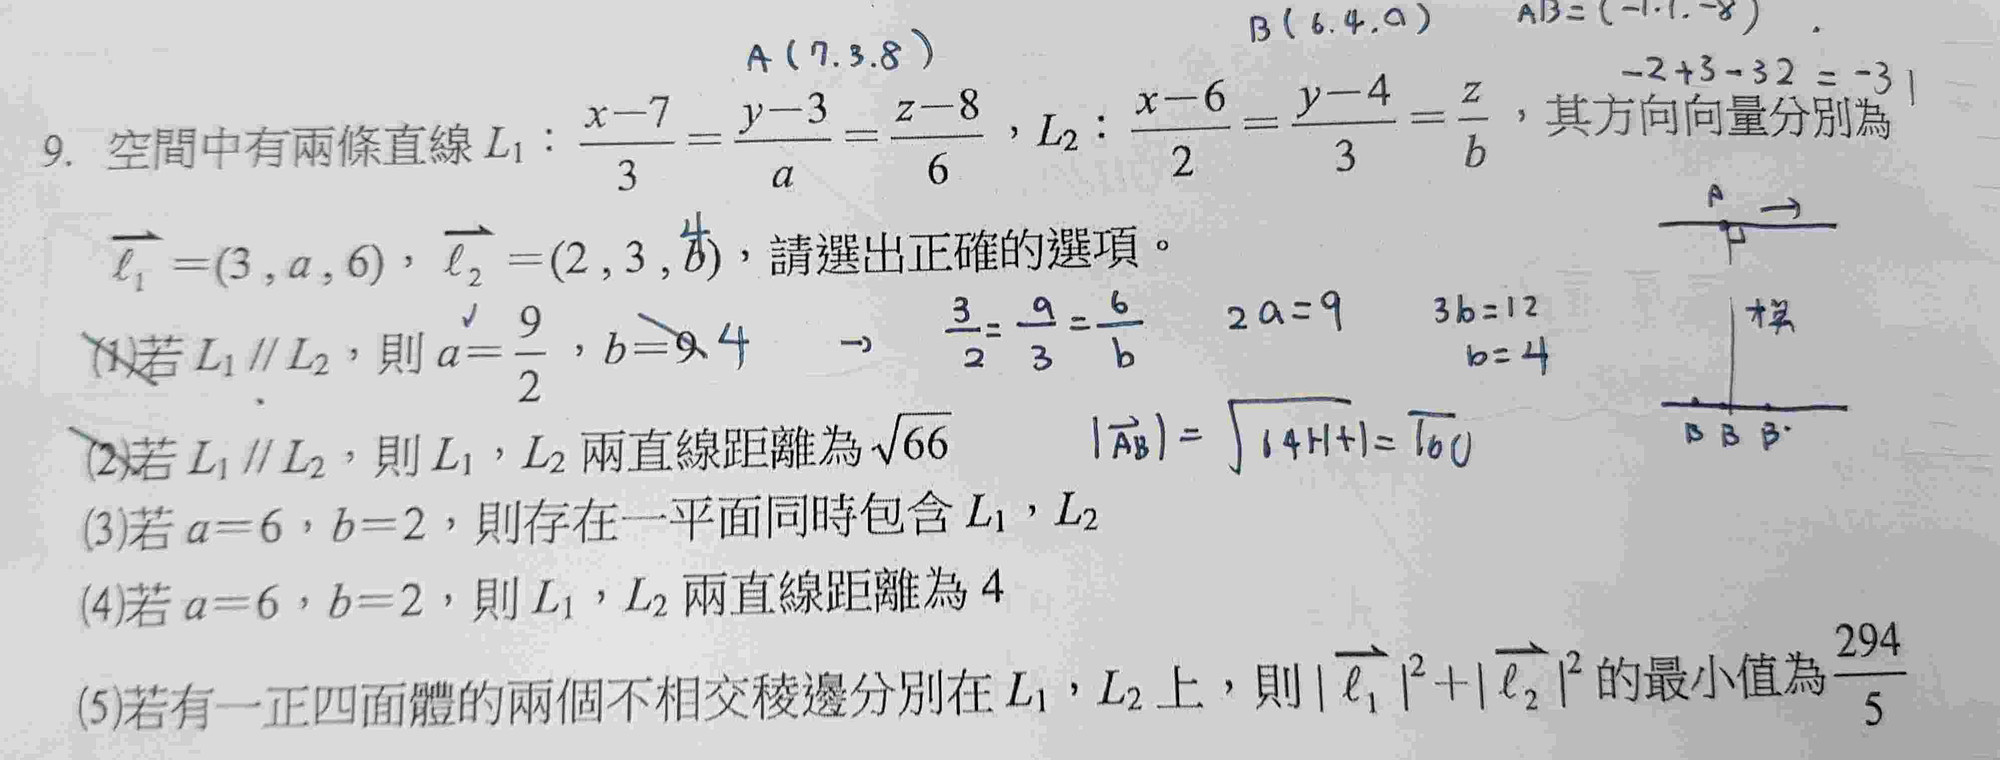 A(7.3.8) B(6.4.0) AB=(-1.1.-8)
-2+3-32=-31
9. 空間中有兩條直線 L₁：(x−7)/3=(y−3)/a=(z−8)/6，L₂：(x−6)/2=(y−4)/3=z/b，其方向向量分別為
ℓ₁⃗=(3,a,6)，ℓ₂⃗=(2,3,b)，請選出正確的選項。
4
A →
(1)若 L₁∥L₂，則 a=9/2，b=9 4 → 3/2=a/3=6/b 2a=9 3b=12
b=4
(2)若 L₁∥L₂，則 L₁，L₂ 兩直線距離為√66 |AB⃗|=√64+1+1=√66
B B B
(3)若 a=6，b=2，則存在一平面同時包含 L₁，L₂
(4)若 a=6，b=2，則 L₁，L₂ 兩直線距離為 4
(5)若有一正四面體的兩個不相交稜邊分別在 L₁，L₂ 上，則|ℓ₁⃗|²+|ℓ₂⃗|²的最小值為294/5